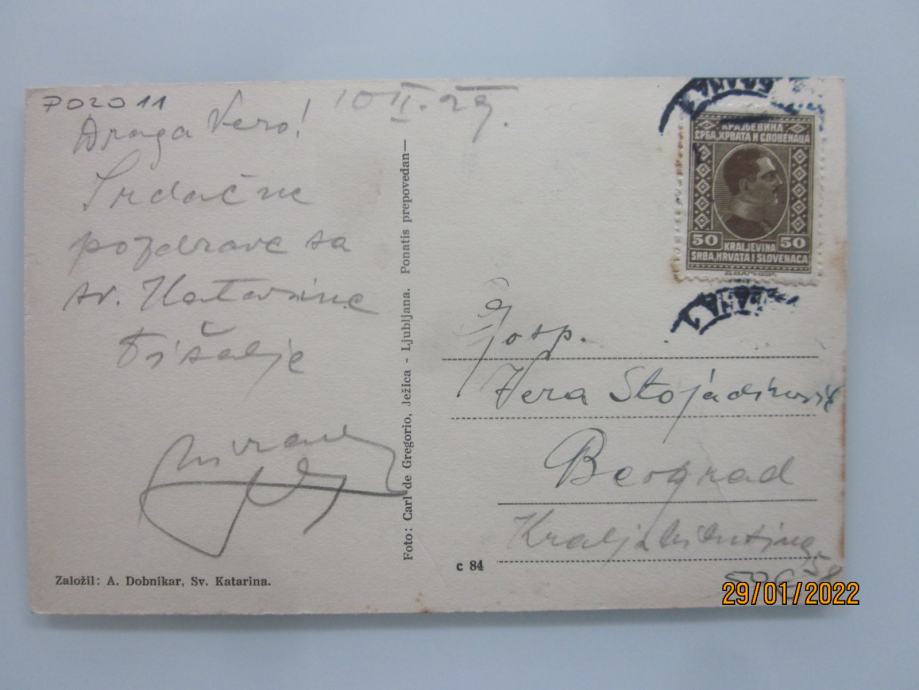 POZO11
10 II. 29.
Draga Vero!
Srdačne
pozdrave sa
sv. Katarine
šalje
Založil: A. Dobnikar, Sv. Katarina.
Foto: Carl de Gregorio, Ježica - Ljubljana. Ponatis prepovedan—
c 84
КРАЉЕВИНА
СРБА, ХРВАТА И СЛОВЕНАЦА
50 50
KRALJEVINA
SRBA, HRVATA I SLOVENACA
Gosp.
Vera Stojadinović
Beograd
Kralja
58
29/01/2022